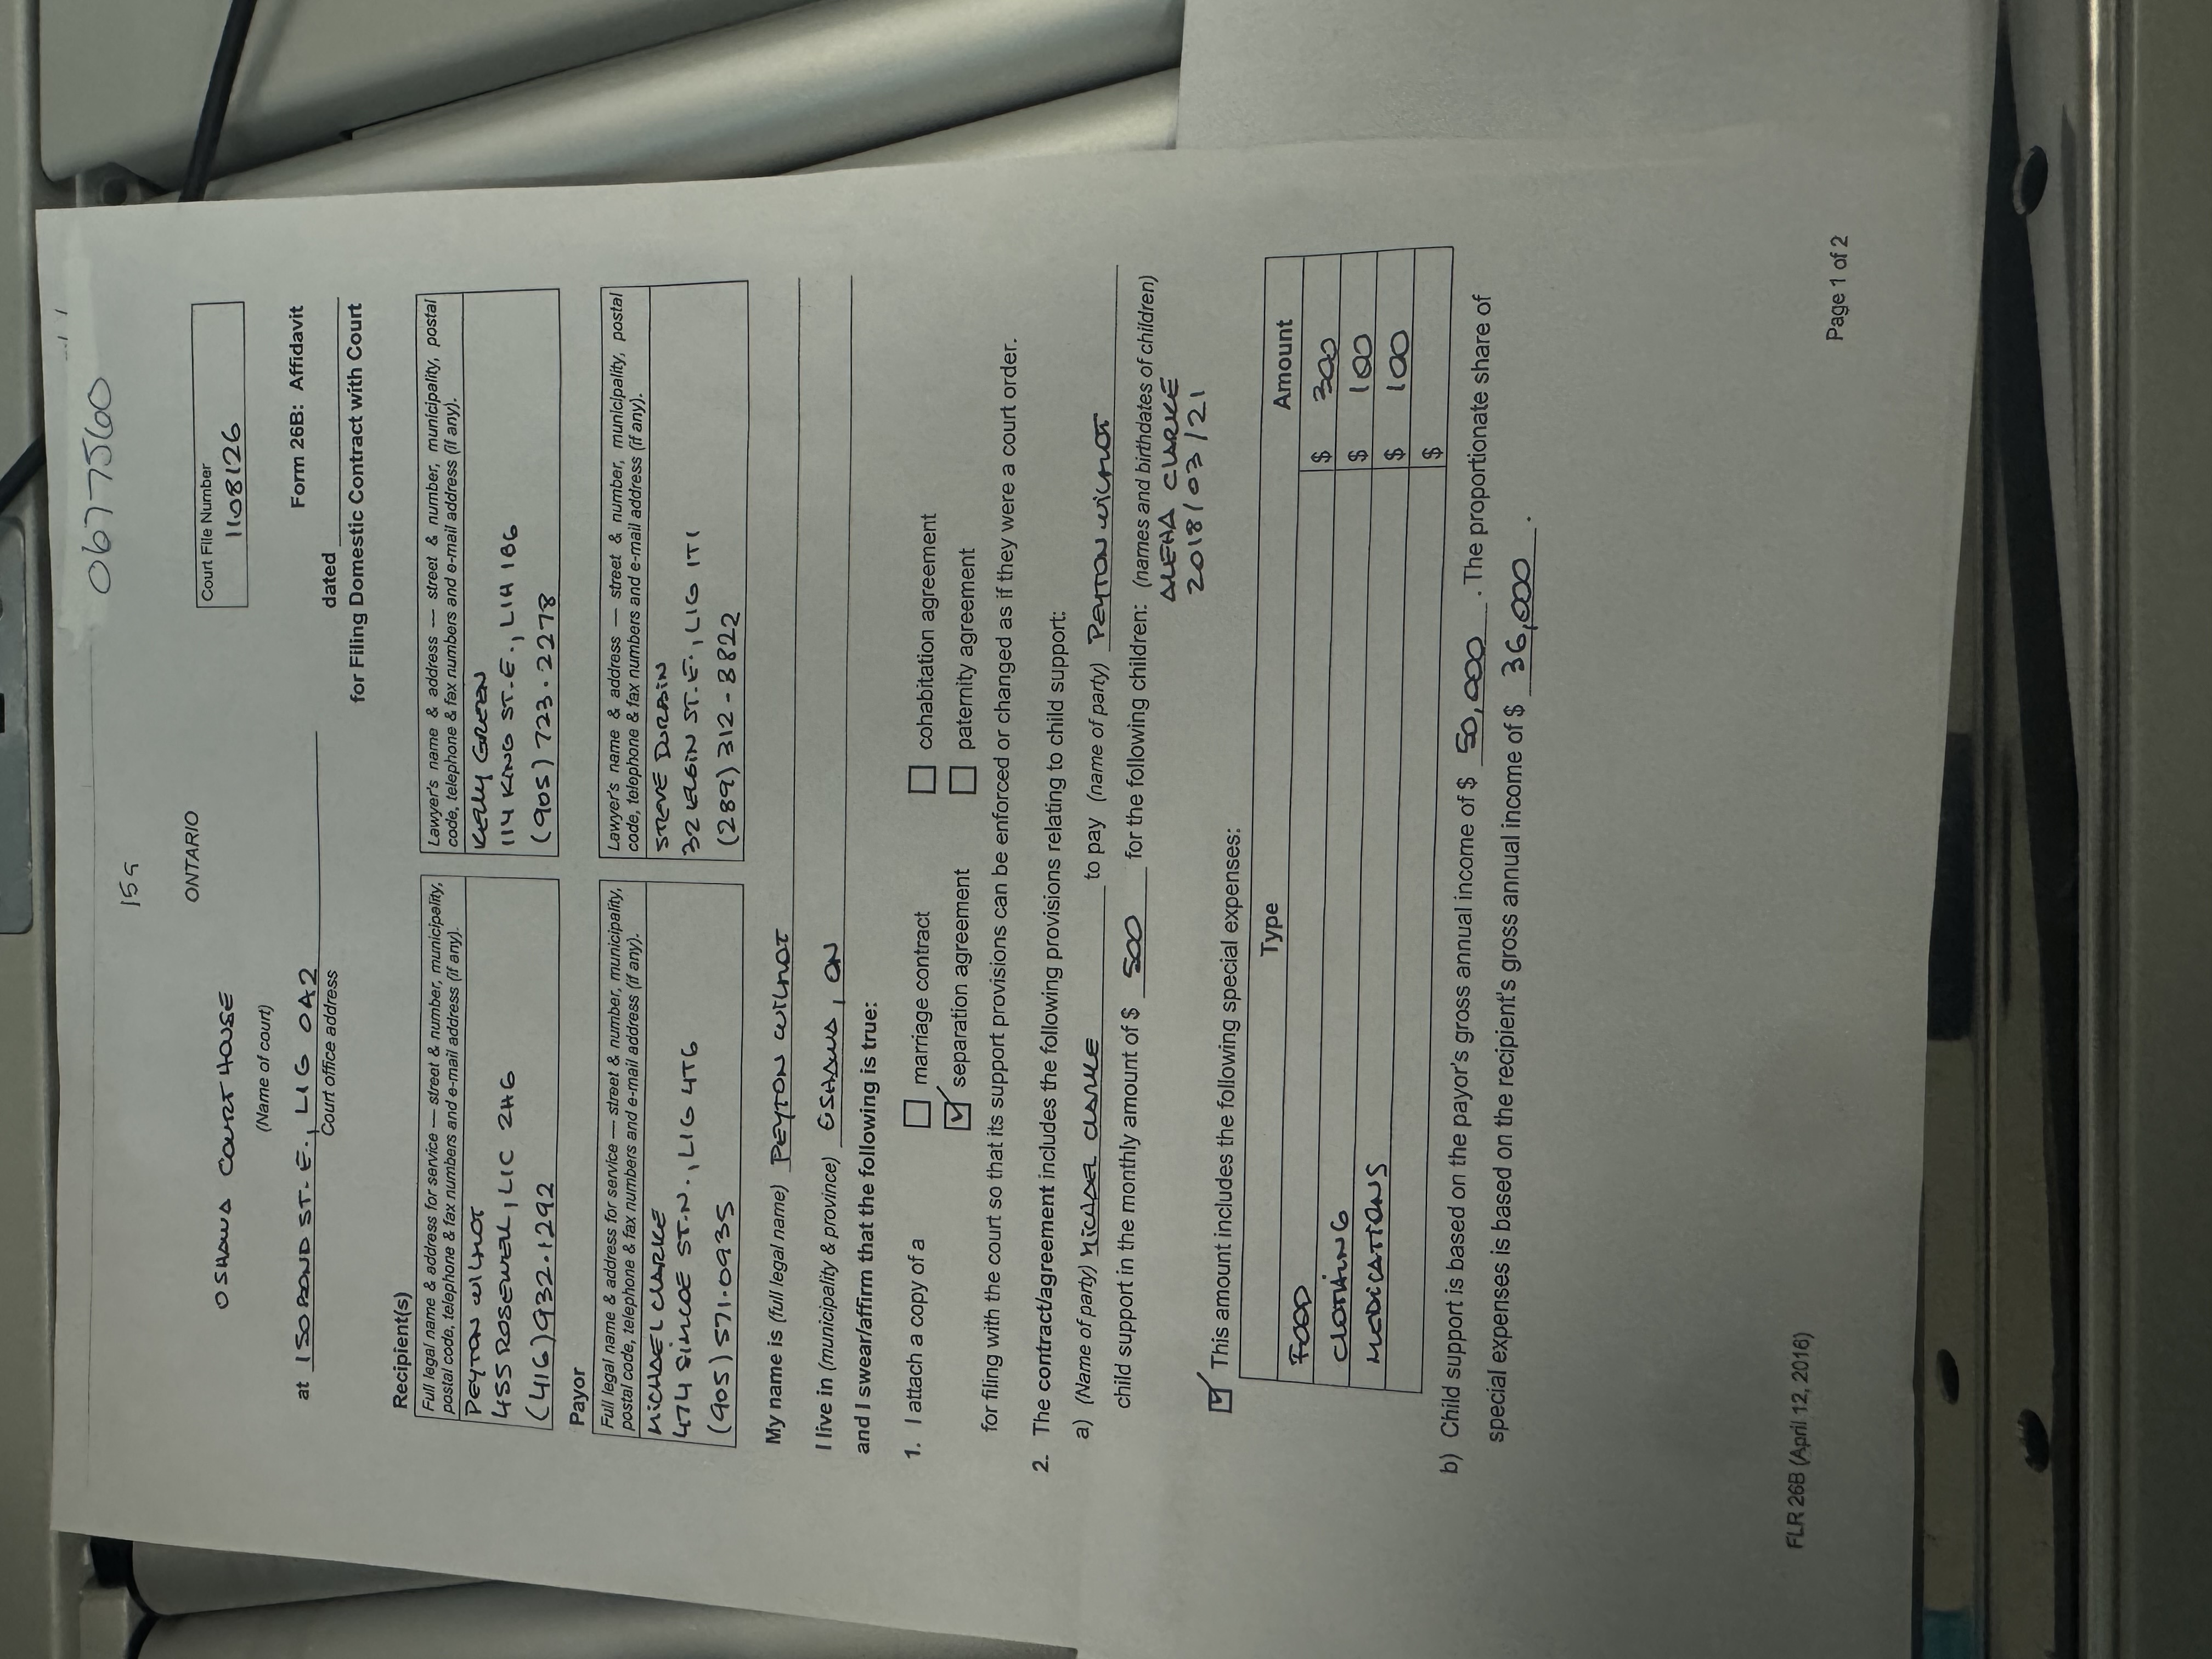 0677560
159
ONTARIO
OSHAWA COURTHOUSE
(Name of court)
Court File Number
1108126
at 150 BOND ST. E., L1G 0A2
Court office address
Form 26B: Affidavit
dated
for Filing Domestic Contract with Court
Recipient(s)
Full legal name & address for service — street & number, municipality, postal code, telephone & fax numbers and e-mail address (if any).
PEYTON WILMOT
455 ROSEWELL, L1C 2H6
(416) 932.1292
Lawyer's name & address — street & number, municipality, postal code, telephone & fax numbers and e-mail address (if any).
KELLY GREEN
114 KING ST. E., L1H 1B6
(905) 723.2278
Payor
Full legal name & address for service — street & number, municipality, postal code, telephone & fax numbers and e-mail address (if any).
MICHAEL CLARKE
474 SIMCOE ST. N., L1G 4T6
(905) 571.0935
Lawyer's name & address — street & number, municipality, postal code, telephone & fax numbers and e-mail address (if any).
STEVE DURBIN
32 ELGIN ST. E., L1G 1T1
(289) 312-8822
My name is (full legal name) PEYTON WILMOT
I live in (municipality & province) OSHAWA, ON
and I swear/affirm that the following is true:
1. I attach a copy of a
marriage contract
cohabitation agreement
separation agreement
paternity agreement
for filing with the court so that its support provisions can be enforced or changed as if they were a court order.
2. The contract/agreement includes the following provisions relating to child support:
a) (Name of party) MICHAEL CLARKE to pay (name of party) PEYTON WILMOT
child support in the monthly amount of $ 500 for the following children: (names and birthdates of children)
ALEHA CLARKE
2018/03/21
This amount includes the following special expenses:
Type Amount
FOOD $ 300
CLOTHING $ 100
MEDICATIONS $ 100
$
b) Child support is based on the payor's gross annual income of $ 50,000. The proportionate share of
special expenses is based on the recipient's gross annual income of $ 36,000.
FLR 26B (April 12, 2016)
Page 1 of 2